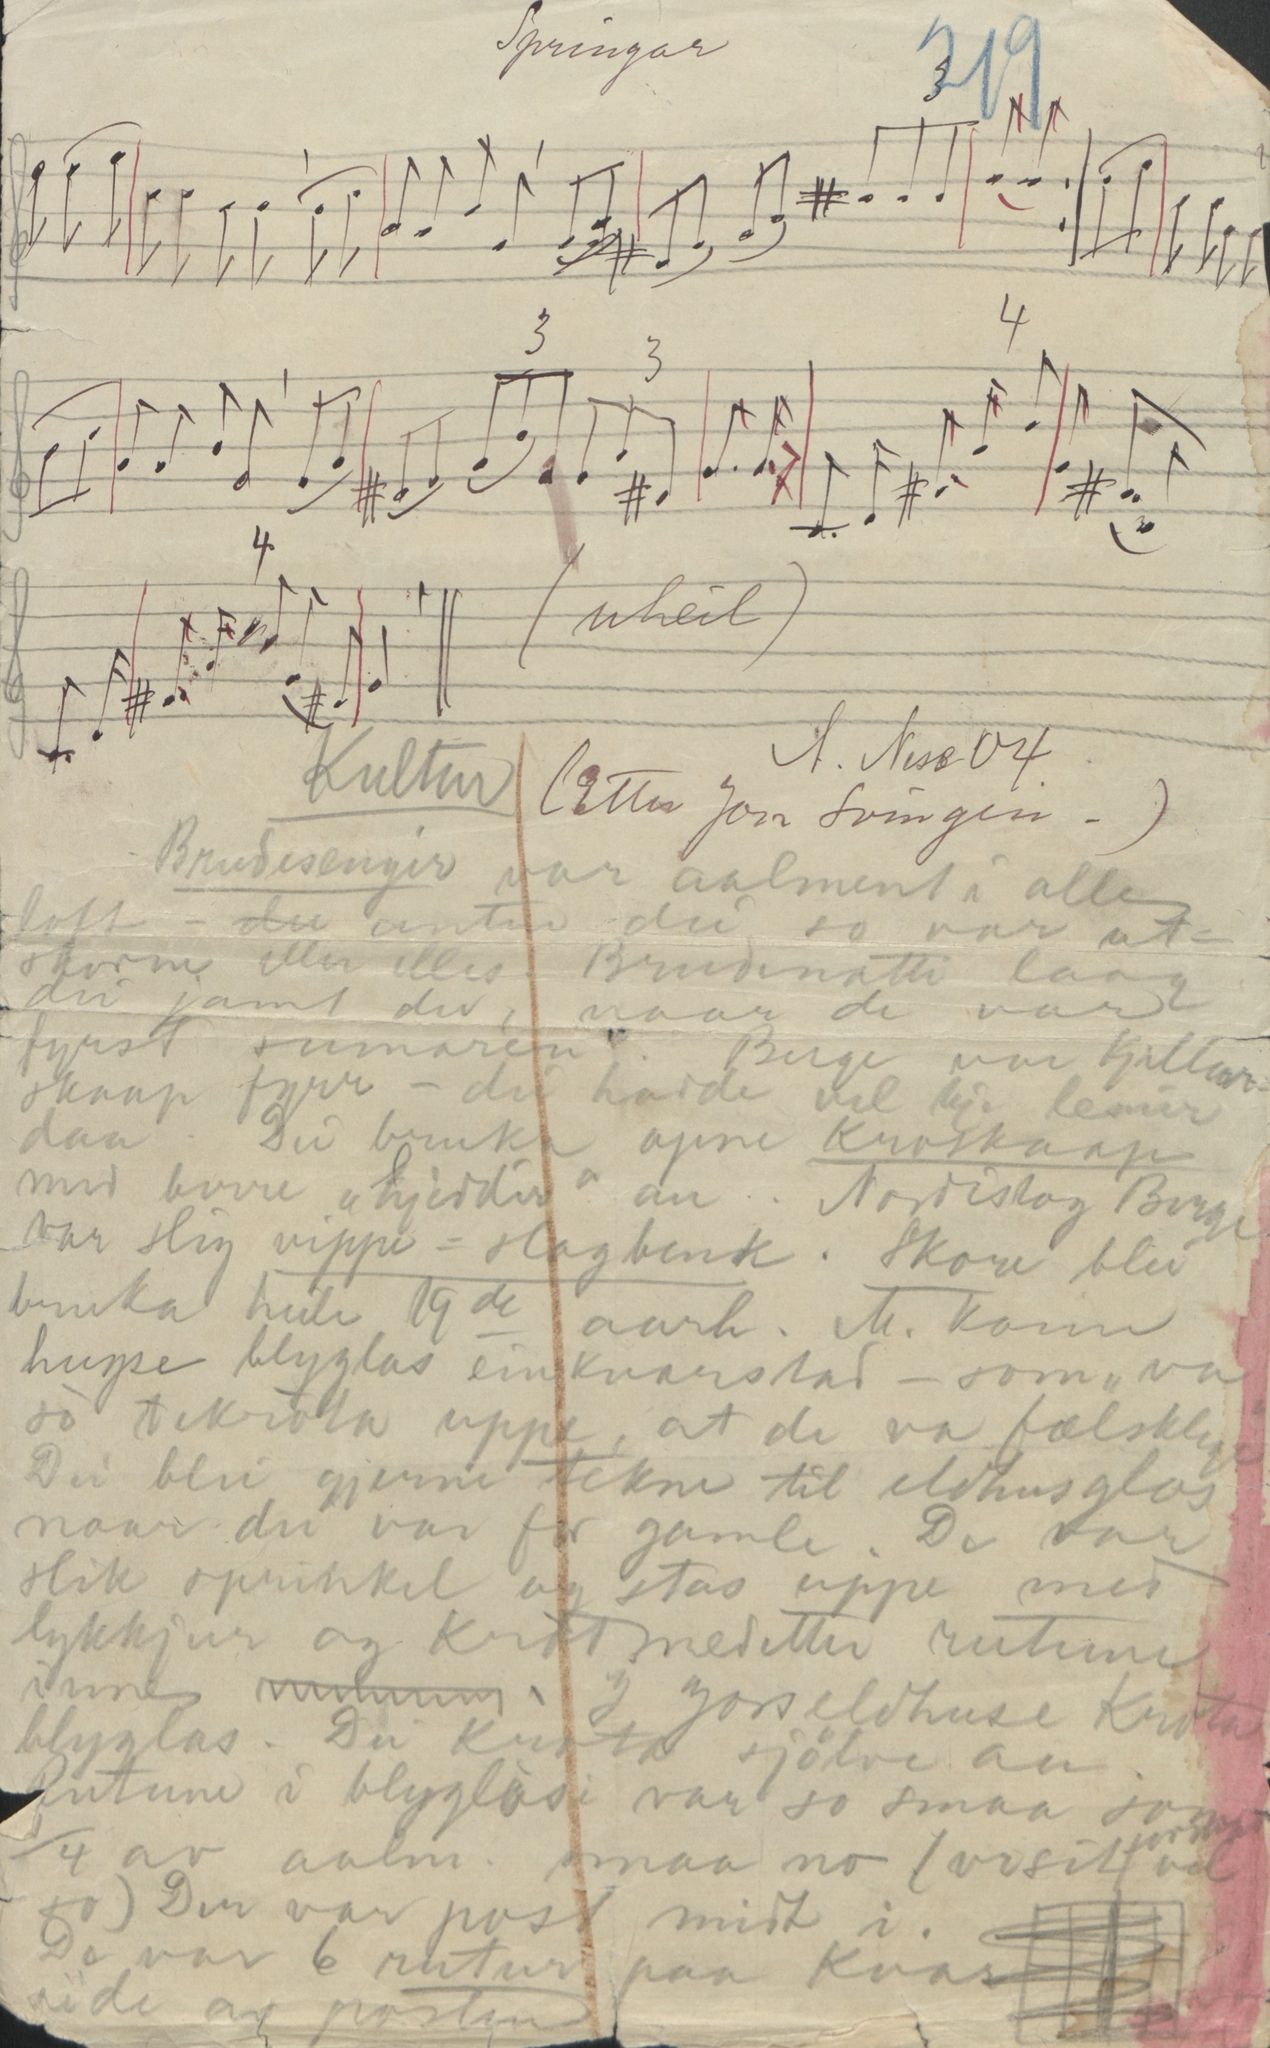 Springar
219
3
3
3
4
4
(uheil)
A. Ness 04
Kultur
(Etter Jon Svingen - )
Brudesengir var aalment i alle
loft - die anten dei so var ut=
skorne eller elles. Brudenatti laag
dei jamt der, naar de var
fyrst sumaren". Berge var kjellar=
skaap fyrr - dei hadde vel kje lemir
daa. Dei bruka apne Kroskaap
med bovre "hjeddir" au. Nordistog Berge
var slig vippe = slagbenk. Skore blei
bruka heile 19de aarh. M. kann
hugse blyglas einkvarstad - som "va
so tekrota uppe, at de va fælsklege"
Dei blei gjerne tekne til eldhusglas
naar dei var for gamle. De var
slik sprinkel og stas uppe med
lykkjur og krot medetter rutune
inne. I Jorseldhuse krota
blyglas. Dei krota sjölve au.
Rutune i blyglasi var so smaa som
1/4 av aalm. smaa no (visit vel
so) Der var post midt i.
De var 6 rutur paa kvar
side av posten